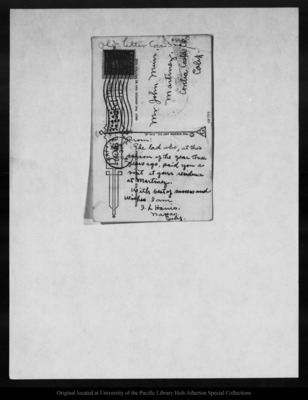 Mr. John Muir,
Martinez,
Contra Costa Co.
Calif.
From:
The lad who, at this
season of the year three
years ago, paid you a
visit at your residence
at Martinez.
With best of success and
wishes I am
Napa,
Calif.
Original located at University of the Pacific Library Holt-Atherton Special Collections